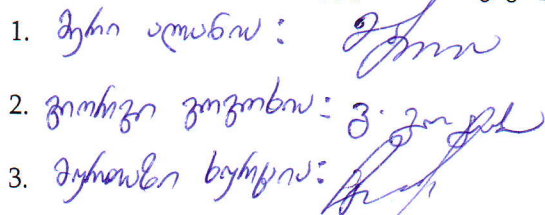 1. მერი ალანია:
2. გიორგი გოგოხია: გ. გოგოხია
3. მურთაზი ხურცია: